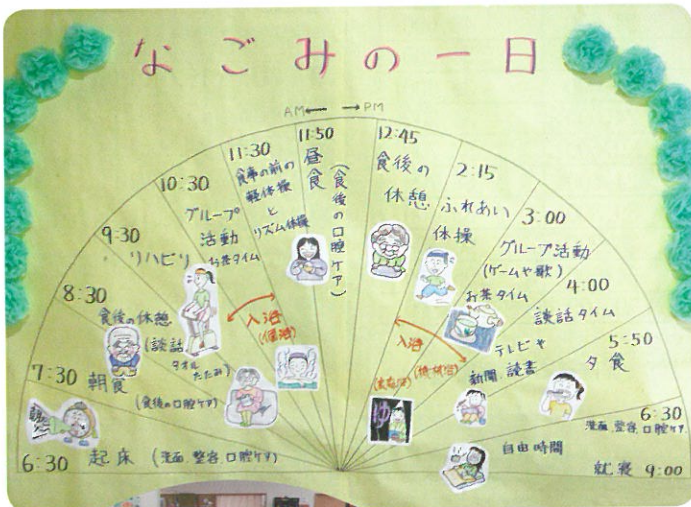 なごみの一日
AM← →PM
6:30 起床 (洗面、整容、口腔ケア)
7:30 朝食
(食後の口腔ケア)
8:30
食後の休憩
(談話
タオル
たたみ)
9:30
リハビリ
10:30
グループ
活動
お茶タイム
11:30
食事の前の
軽体操
と
リズム体操
入浴
(個浴)
11:50
昼食
(食後の口腔ケア)
12:45
食後の
休憩
2:15
ふれあい
体操
入浴
3:00
グループ活動
(ゲームや歌)
お茶タイム
4:00
談話タイム
テレビや
新聞、読書
5:50
夕食
6:30
洗面、整容、口腔ケア
自由時間
就寝 9:00
ゆ